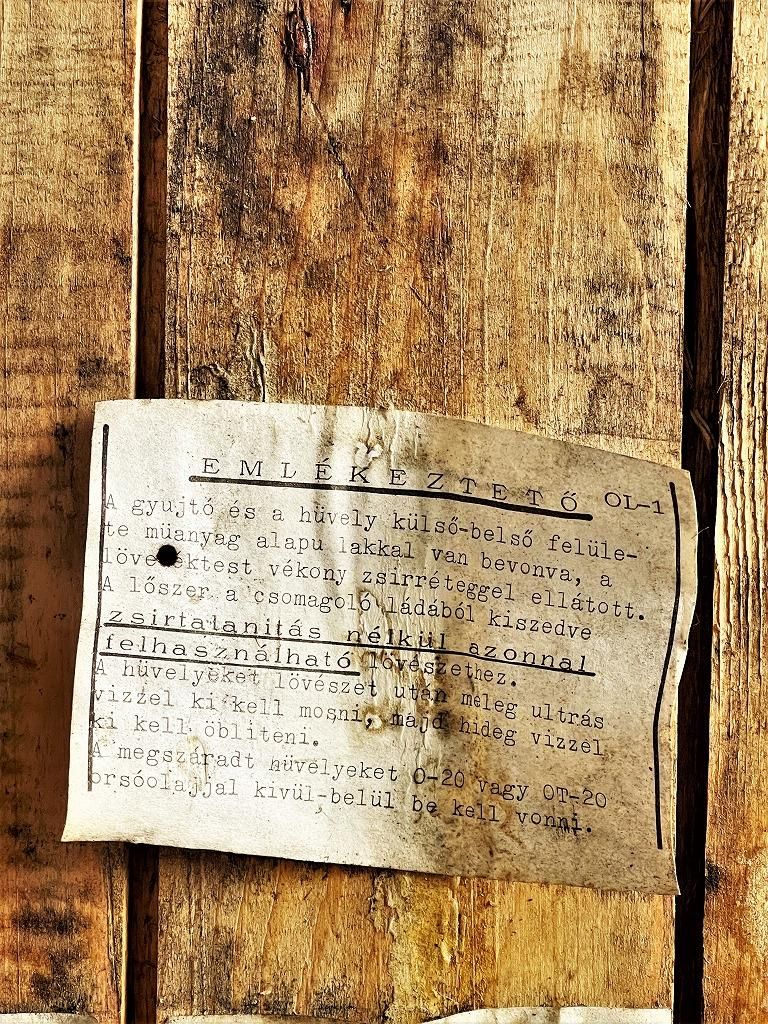 EMLÉKEZTETŐ OL-1
A gyujtó és a hüvely külső-belső felüle-
te müanyag alapu lakkal van bevonva, a
lövedéktest vékony zsirréteggel ellátott.
A lőszer a csomagoló ládából kiszedve
zsirtalanitás nélkül azonnal
felhasználható lövészethez.
A hüvelyeket lövészet után meleg ultrás
vizzel ki kell mosni, majd hideg vizzel
ki kell öbliteni.
A megszáradt hüvelyeket O-20 vagy OT-20
orsóolajjal kivül-belül be kell vonni.